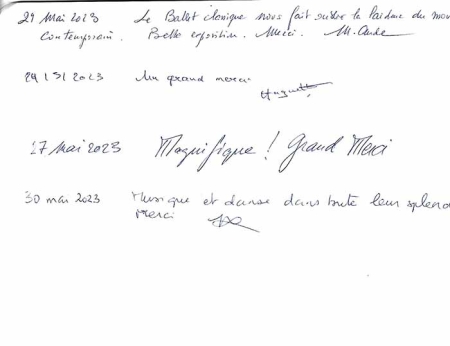 29 Mai 2023 Le Ballet classique nous fait oublier la laideur du mon
Contemporain. Belle exposition. Merci. M. Aude
29 / 5 / 2023 Un grand merci
Huguette
27 Mai 2023 Magnifique ! Grand Merci
30 mai 2023 Musique et danse dans toute leur splend
Merci